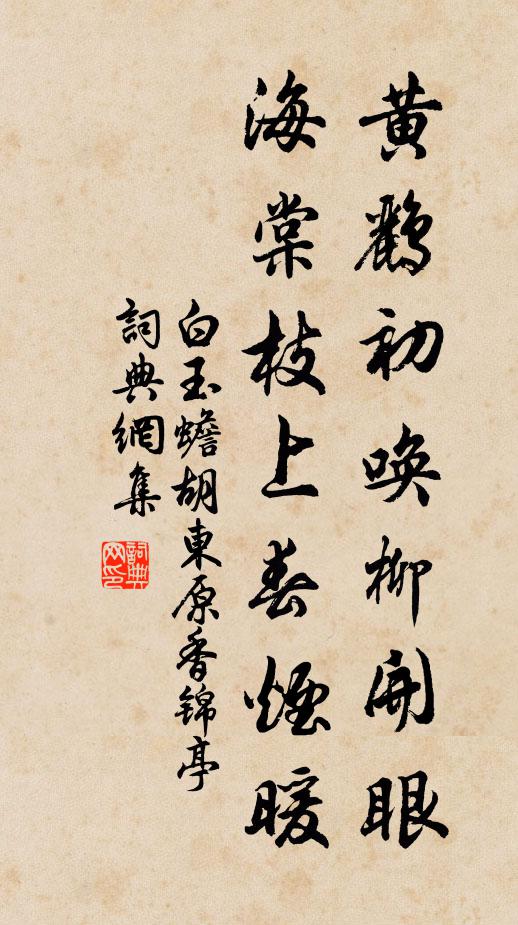 黃鸝初喚柳開眼
海棠枝上春煙暖
白玉蟾胡東原香錦亭
詞典網集
詞典網印